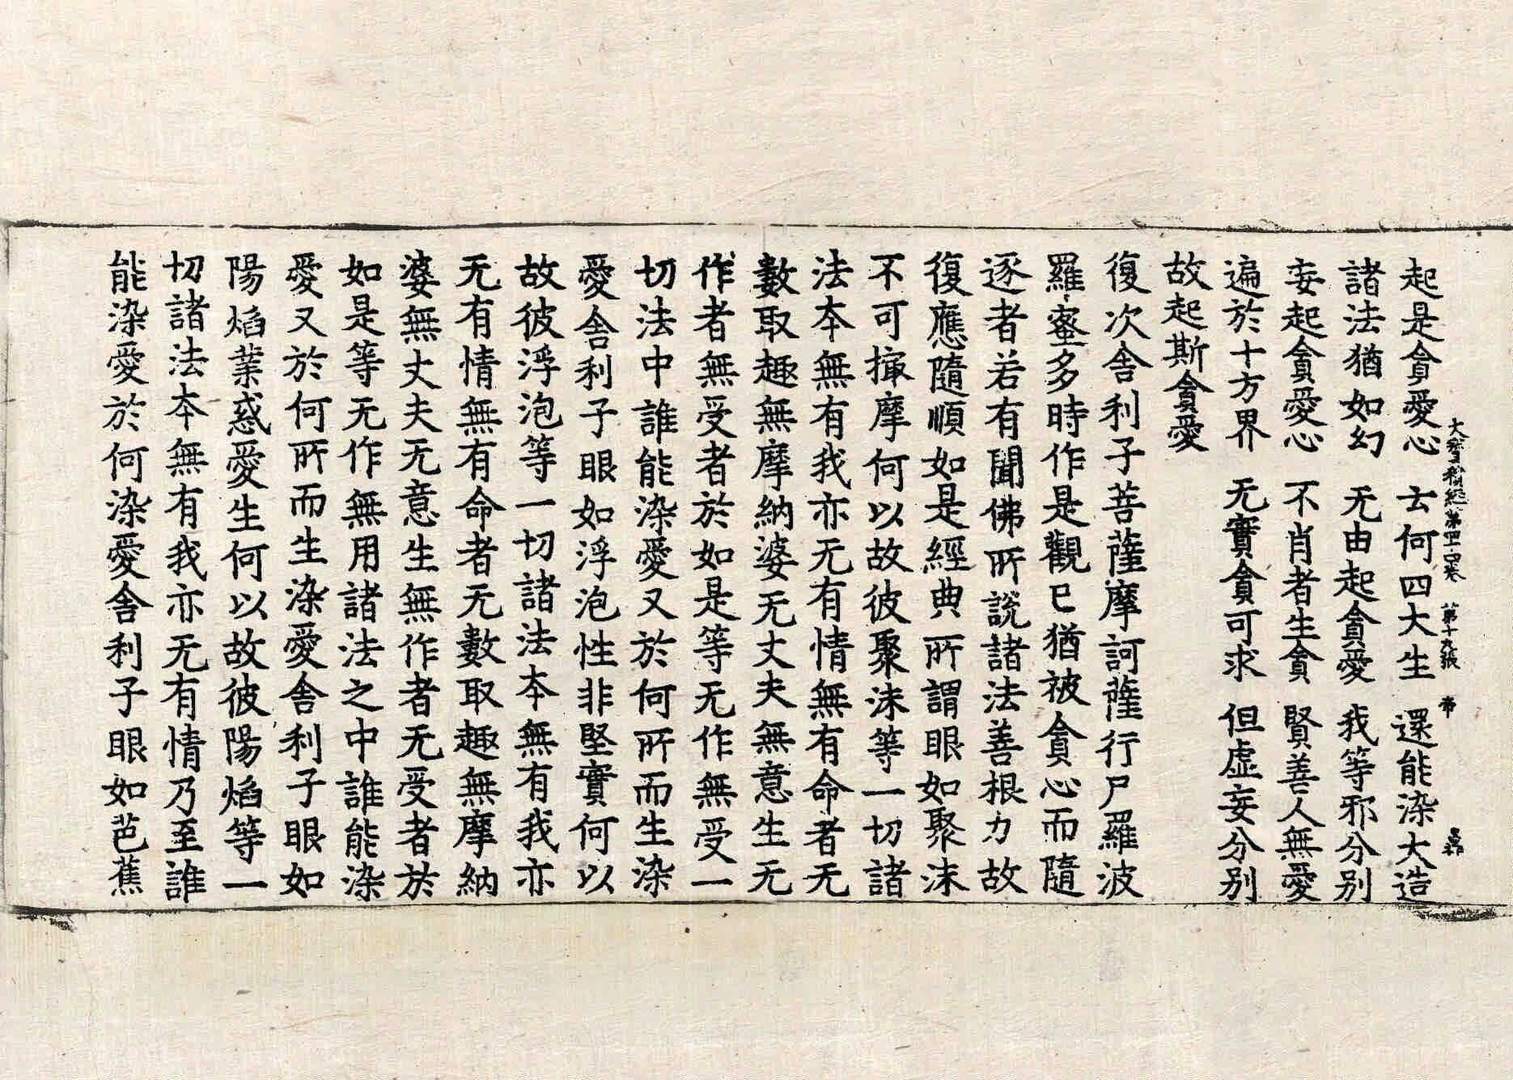 大寶積經第四十四卷 第十九張 帝
起是貪愛心 云何四大生 還能染大造
諸法猶如幻 无由起貪愛 我等邪分別
妄起貪愛心 不肖者生貪 賢善人無愛
遍於十方界 无實貪可求 但虛妄分別
故起斯貪愛
復次舍利子菩薩摩訶薩行尸羅波
羅蜜多時作是觀已猶被貪心而隨
逐者若有聞佛所說諸法善根力故
復應隨順如是經典所謂眼如聚沫
不可撮摩何以故彼聚沫等一切諸
法本無有我亦无有情無有命者无
數取趣無摩納婆无丈夫無意生无
作者無受者於如是等无作無受一
切法中誰能染愛又於何所而生染
愛舍利子眼如浮泡性非堅實何以
故彼浮泡等一切諸法本無有我亦
无有情無有命者无數取趣無摩納
婆無丈夫无意生無作者无受者於
如是等无作無用諸法之中誰能染
愛又於何所而生染愛舍利子眼如
陽焰業惑愛生何以故彼陽焰等一
切諸法本無有我亦无有情乃至誰
能染愛於何染愛舍利子眼如芭蕉